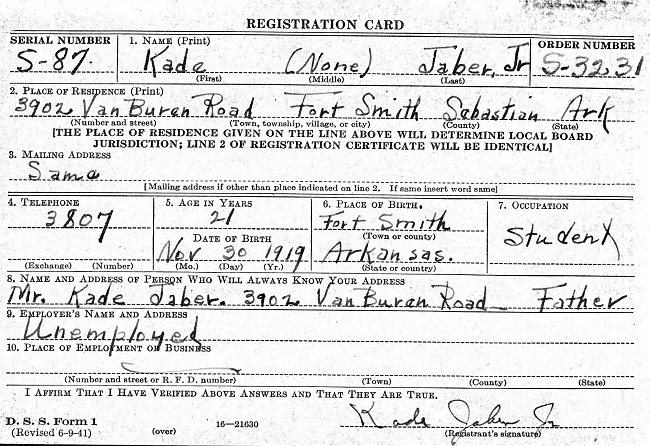 REGISTRATION CARD
SERIAL NUMBER 1. NAME (Print) ORDER NUMBER
S-87. Kade (None) Jaber, Jr S-3231
(First) (Middle) (Last)
2. PLACE OF RESIDENCE (Print)
3902 Van Buren Road Fort Smith Sebastian Ark
(Number and street) (Town, township, village, or city) (County) (State)
[THE PLACE OF RESIDENCE GIVEN ON THE LINE ABOVE WILL DETERMINE LOCAL BOARD
JURISDICTION; LINE 2 OF REGISTRATION CERTIFICATE WILL BE IDENTICAL]
3. MAILING ADDRESS
Same
[Mailing address if other than place indicated on line 2. If same insert word same]
4. TELEPHONE 5. AGE IN YEARS 6. PLACE OF BIRTH. 7. OCCUPATION
3807 21 Fort Smith Student
DATE OF BIRTH (Town or county)
Nov 30 1919 Arkansas.
(Exchange) (Number) (Mo.) (Day) (Yr.) (State or country)
8. NAME AND ADDRESS OF PERSON WHO WILL ALWAYS KNOW YOUR ADDRESS
Mr. Kade Jaber. 3902 Van Buren Road — Father
9. EMPLOYER'S NAME AND ADDRESS
Unemployed
10. PLACE OF EMPLOYMENT OR BUSINESS
(Number and street or R. F. D. number) (Town) (County) (State)
I AFFIRM THAT I HAVE VERIFIED ABOVE ANSWERS AND THAT THEY ARE TRUE.
Kade Jaber Jr
D. S. S. Form 1 16—21630 (Registrant's signature)
(Revised 6-9-41) (over)